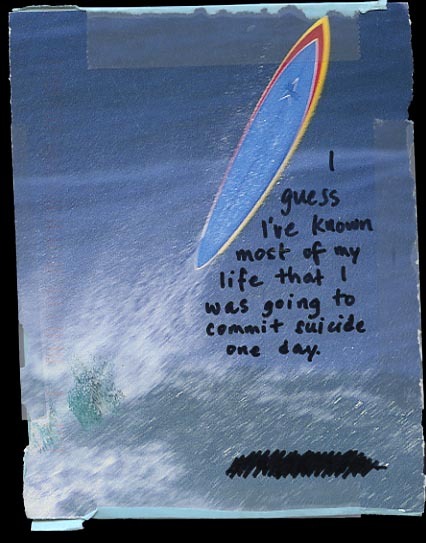 I
guess
I've known
most of my
life that I
was going to
commit suicide
one day.